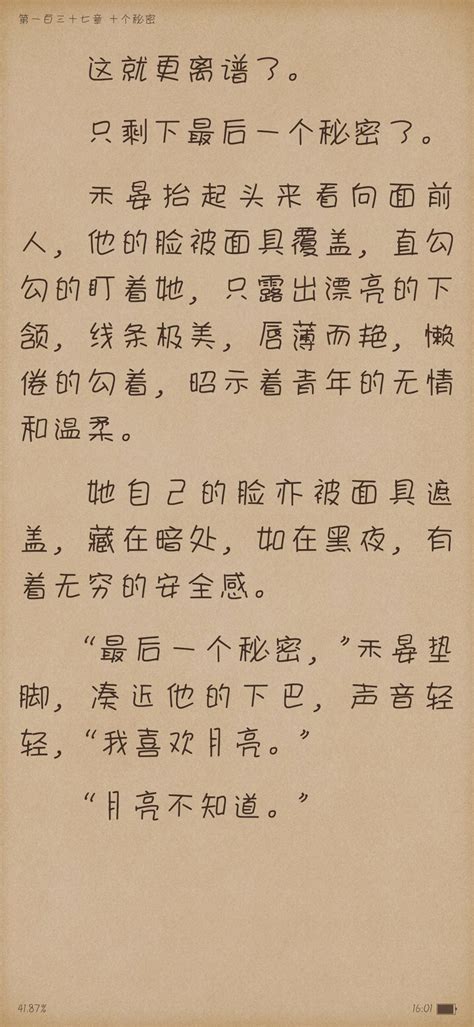 第一百三十七章 十个秘密
这就更离谱了。
只剩下最后一个秘密了。
禾晏抬起头来看向面前
人，他的脸被面具覆盖，直勾
勾的盯着她，只露出漂亮的下
颌，线条极美，唇薄而艳，懒
倦的勾着，昭示着青年的无情
和温柔。
她自己的脸亦被面具遮
盖，藏在暗处，如在黑夜，有
着无穷的安全感。
“最后一个秘密，”禾晏垫
脚，凑近他的下巴，声音轻
轻，“我喜欢月亮。”
“月亮不知道。”
41.87%
16:01